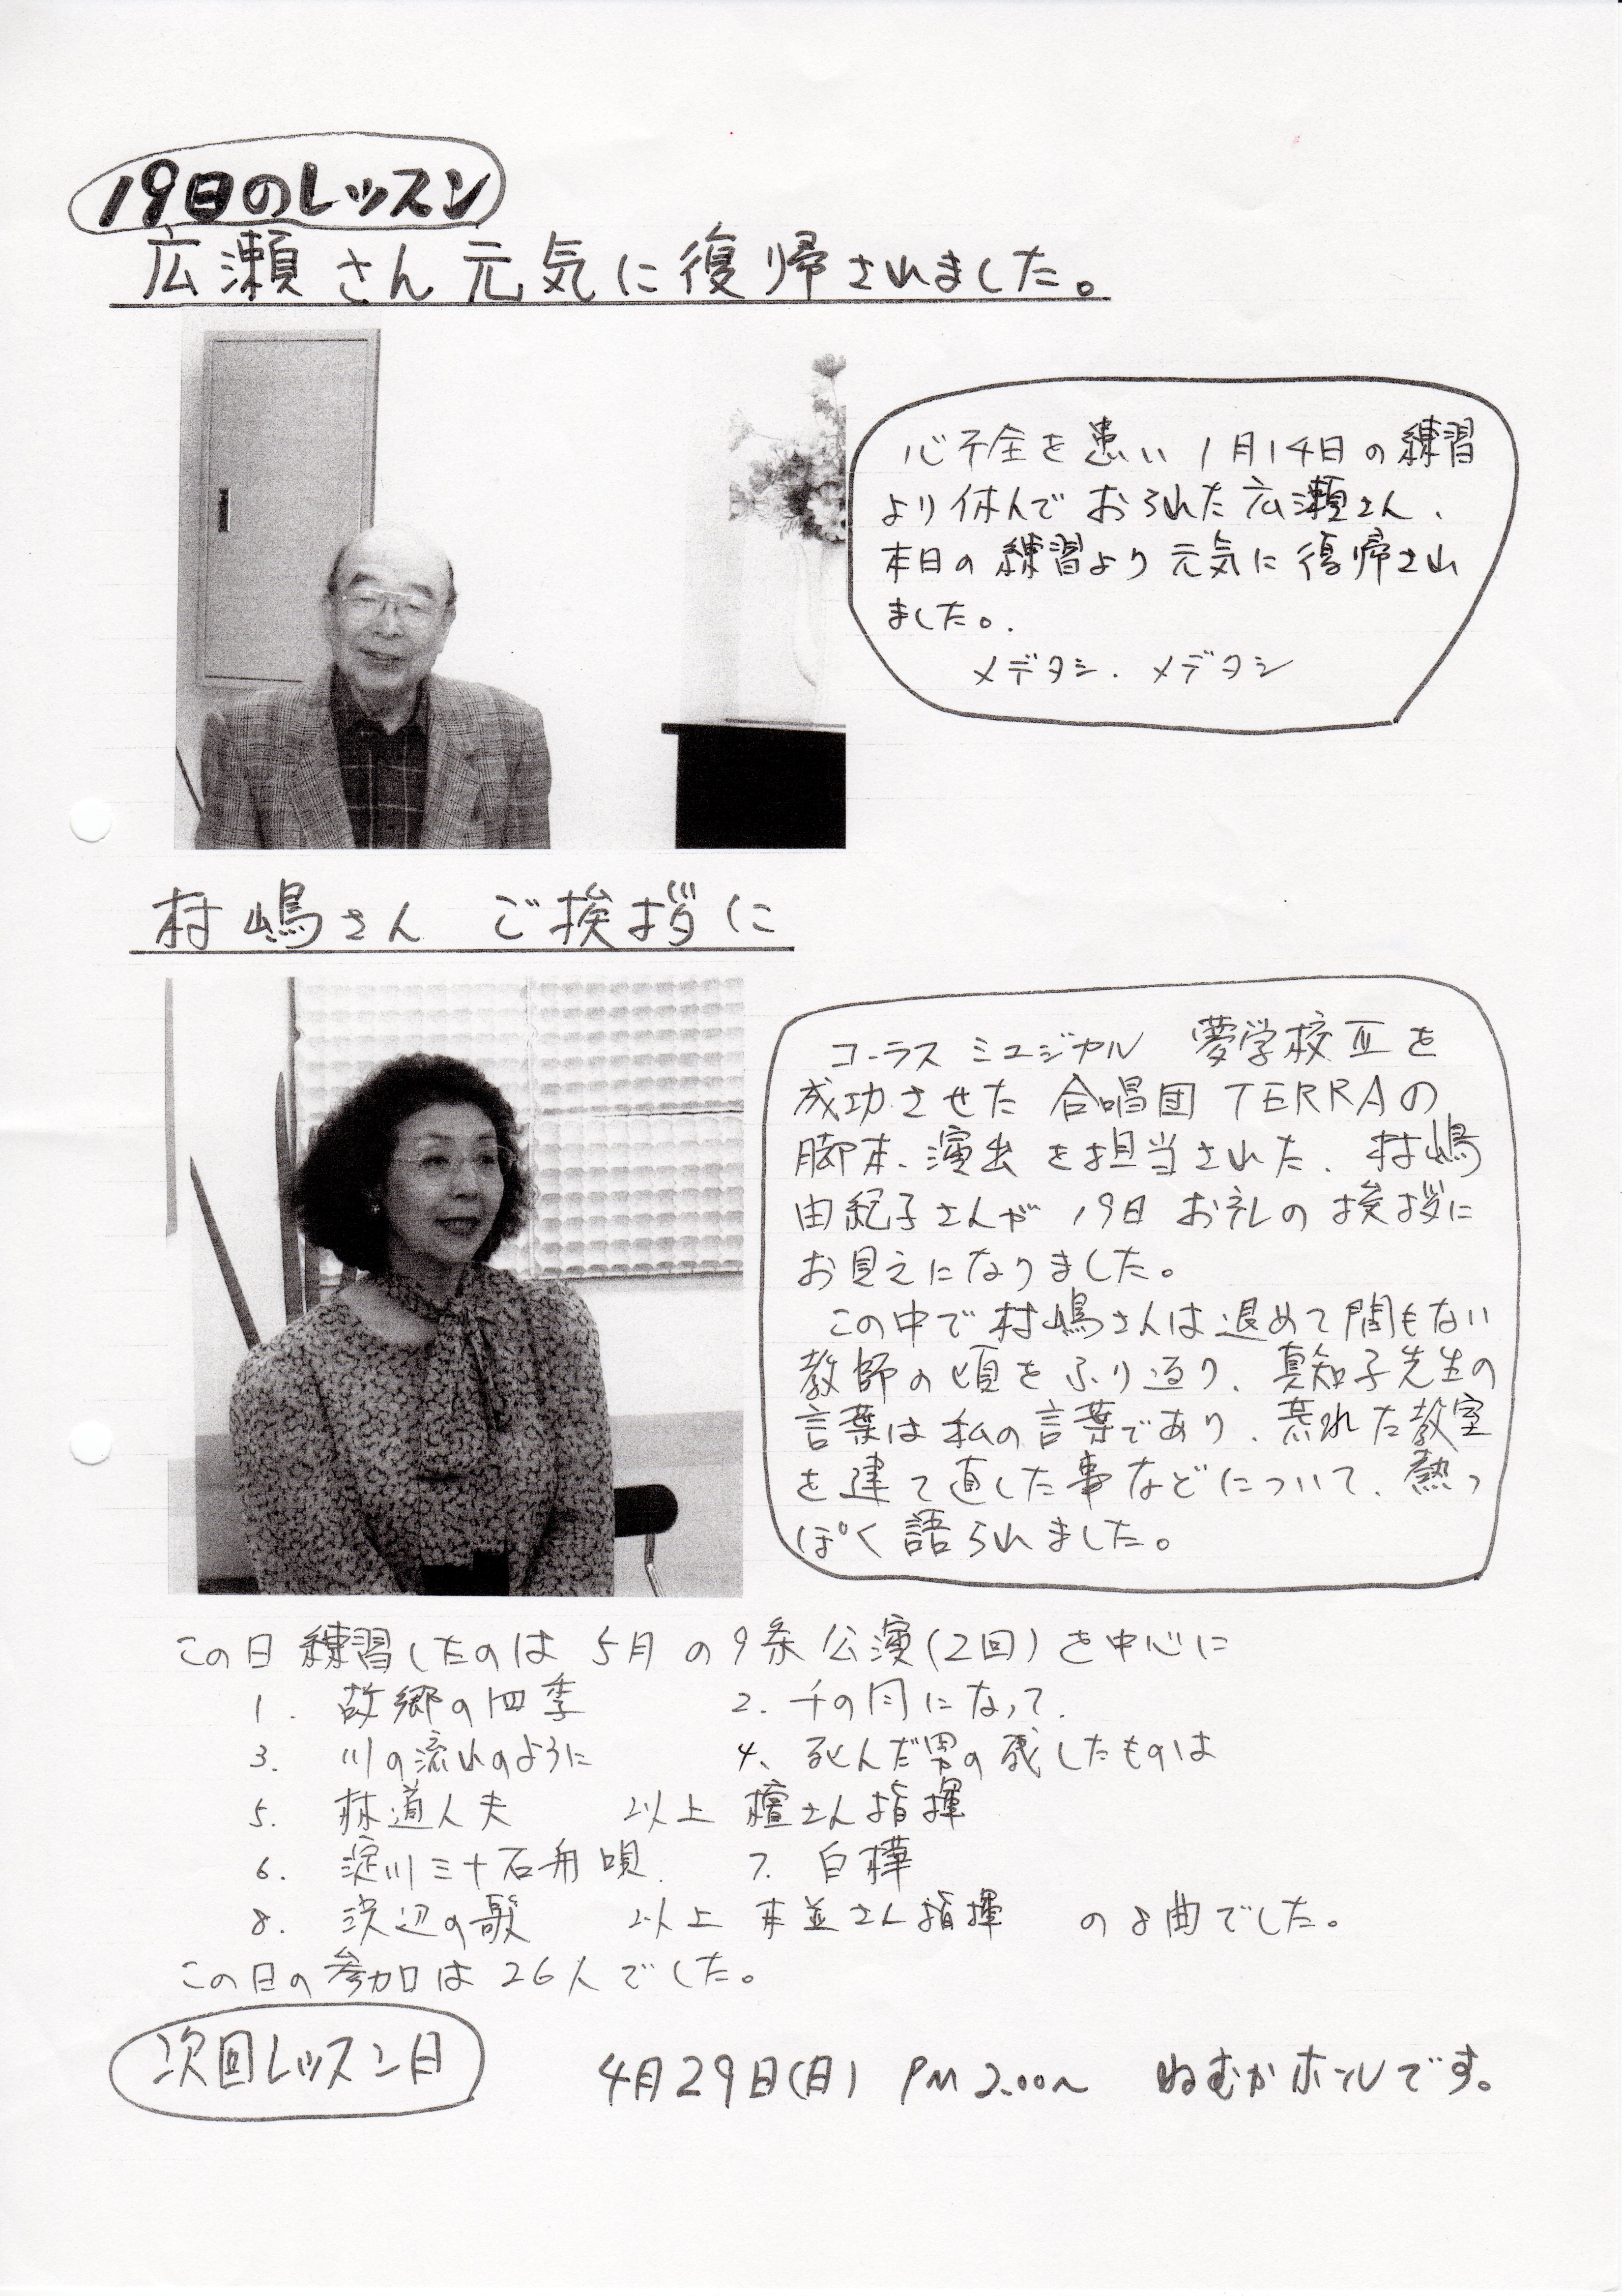 19日のレッスン
広瀬さん元気に復帰されました。
心不全を患い1月14日の練習
より休んでおられた広瀬さん、
本日の練習より元気に復帰され
ました。
メデタシ.メデタシ
村嶋さん ご挨拶に
コーラスミュージカル 夢学校Ⅲを
成功させた合唱団TERRAの
脚本、演出を担当された、村嶋
由紀子さんが19日お礼の挨拶に
お見えになりました。
この中で村嶋さんは退めて間もない
教師の頃をふり返り、真知子先生の
言葉は私の言葉であり、荒れた教室
を建て直した事などについて、熱っ
ぽく語られました。
この日練習したのは5月の9条公演(2回)を中心に
1. 故郷の四季 2. 千の风になって.
3. 川の流れのように 4、死んだ男の残したものは
5. 林道人夫 以上 檀さん指揮
6. 淀川三十石舟唄. 7. 白樺
8. 浜辺の歌 以上 末並さん指揮 の8曲でした。
この日の参加は26人でした。
次回レッスン日 4月29日(月) PM2.00~ ねむかホールです。